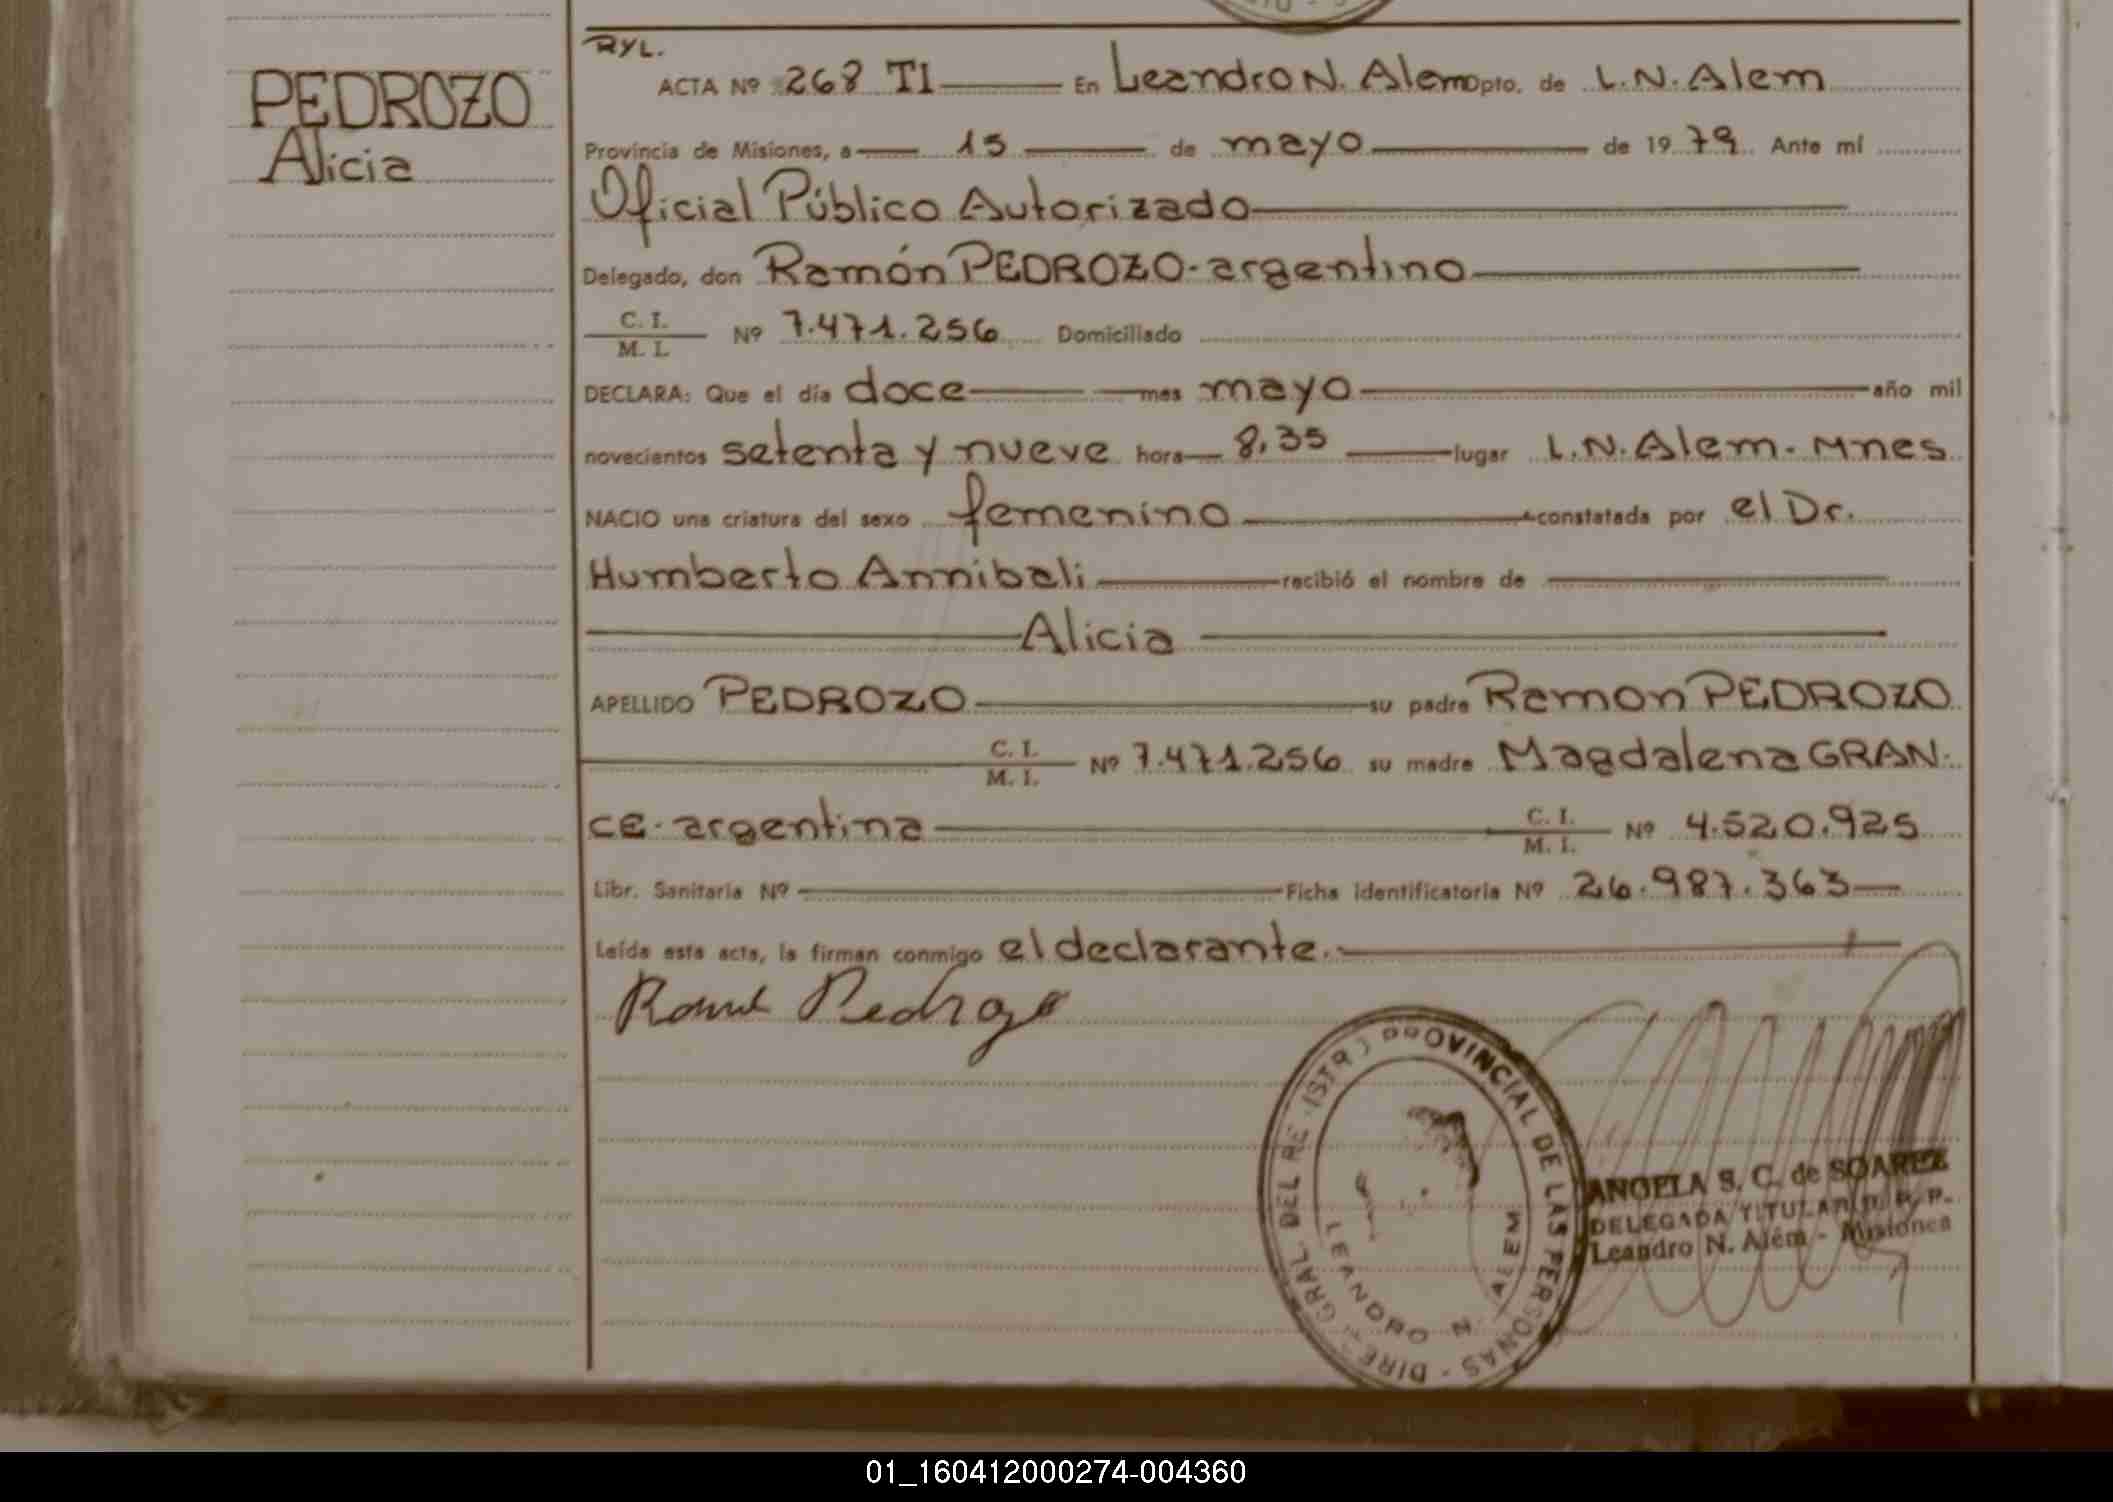 PEDROZO
Alicia
RYL.
ACTA Nº 268 TI En Leandro N. Alem Dpto. de L.N. Alem
Provincia de Misiones, a 15 de mayo de 1979. Ante mí
Oficial Público Autorizado
Delegado, don Ramón PEDROZO - argentino
C. I.
M. I. Nº 7.471.256 Domiciliado
DECLARA: Que el día doce mes mayo año mil
novecientos setenta y nueve hora 8,35 lugar L.N. Alem - Mnes
NACIO una criatura del sexo femenino constatada por el Dr.
Humberto Annibali recibió el nombre de
Alicia
APELLIDO PEDROZO su padre Ramon PEDROZO
C. I.
M. I. Nº 7.471.256 su madre Magdalena GRAN-
CE - argentina C. I.
M. I. Nº 4.520.925
Libr. Sanitaria Nº Ficha identificatoria Nº 26.987.363
Leída esta acta, la firman conmigo el declarante.
PROVINCIAL DE LAS PERSONAS
LEANDRO N. ALEM
ANGELA S. C. de SOAREZ
DELEGADA TITULAR
Leandro N. Além - Misiones
01_160412000274-004360